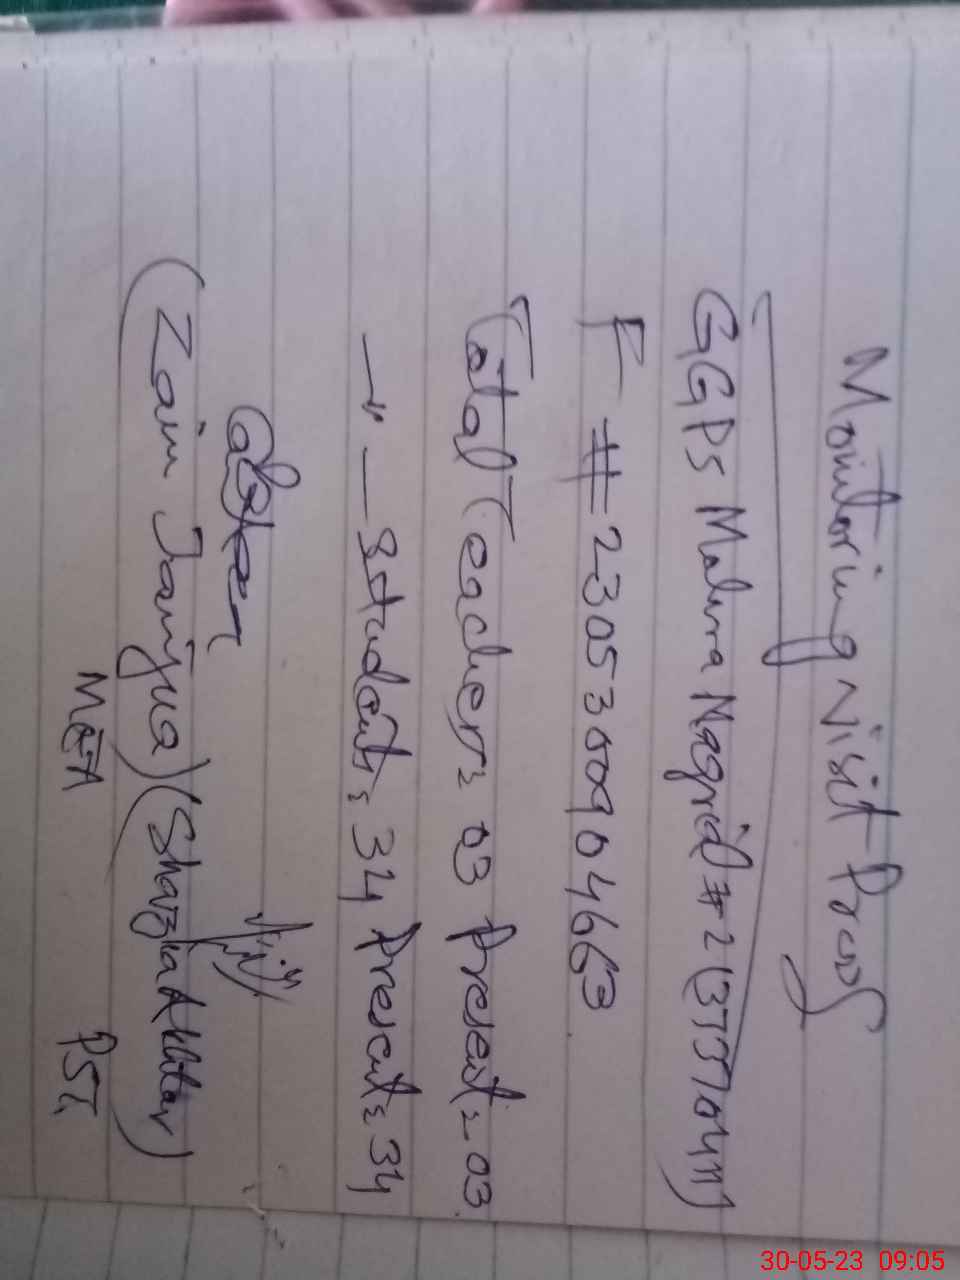 Monitoring Visit Proof
GGPS Malura Maggrid # 2 (37370411)
F # 230530090 4663
Total Teachers = 03 Present = 03
—"— Students = 34 Present = 34
(Zaim Janjua) (Shazia Akhtar)
MEA PST.
30-05-23 09:05